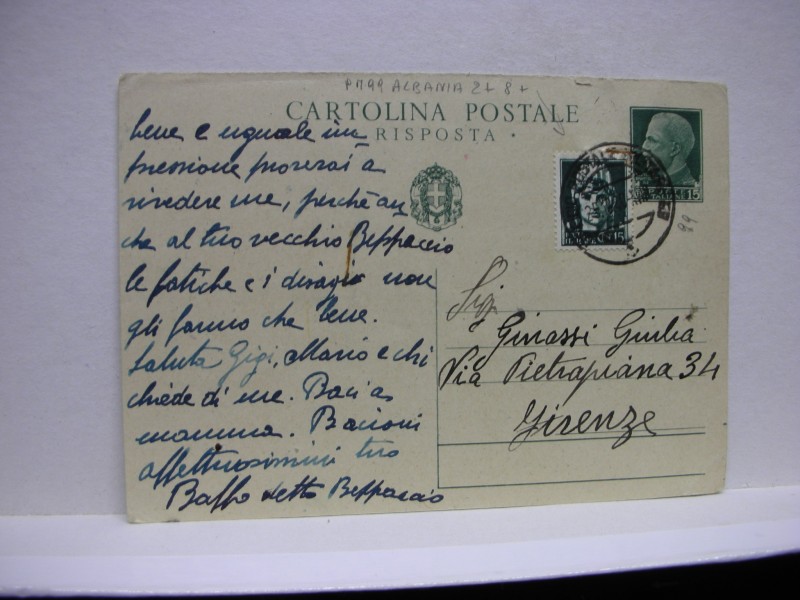 PM 99 ALBANIA 2+ 8+
CARTOLINA POSTALE
RISPOSTA
bene e uguale im
pressione proverai a
rivedere me, perchè an
che al tuo vecchio Beppaccio
le fatiche e i disagi non
gli fanno che bene.
Saluta Gigi, Mario e chi
chiede di me. Baci a
mamma. Bacioni
affettuosissimi tuo
Baffo detto Beppaccio
15
15
99
Sig.
Ginassi Giulia
Via Pietrapiana 34
Firenze